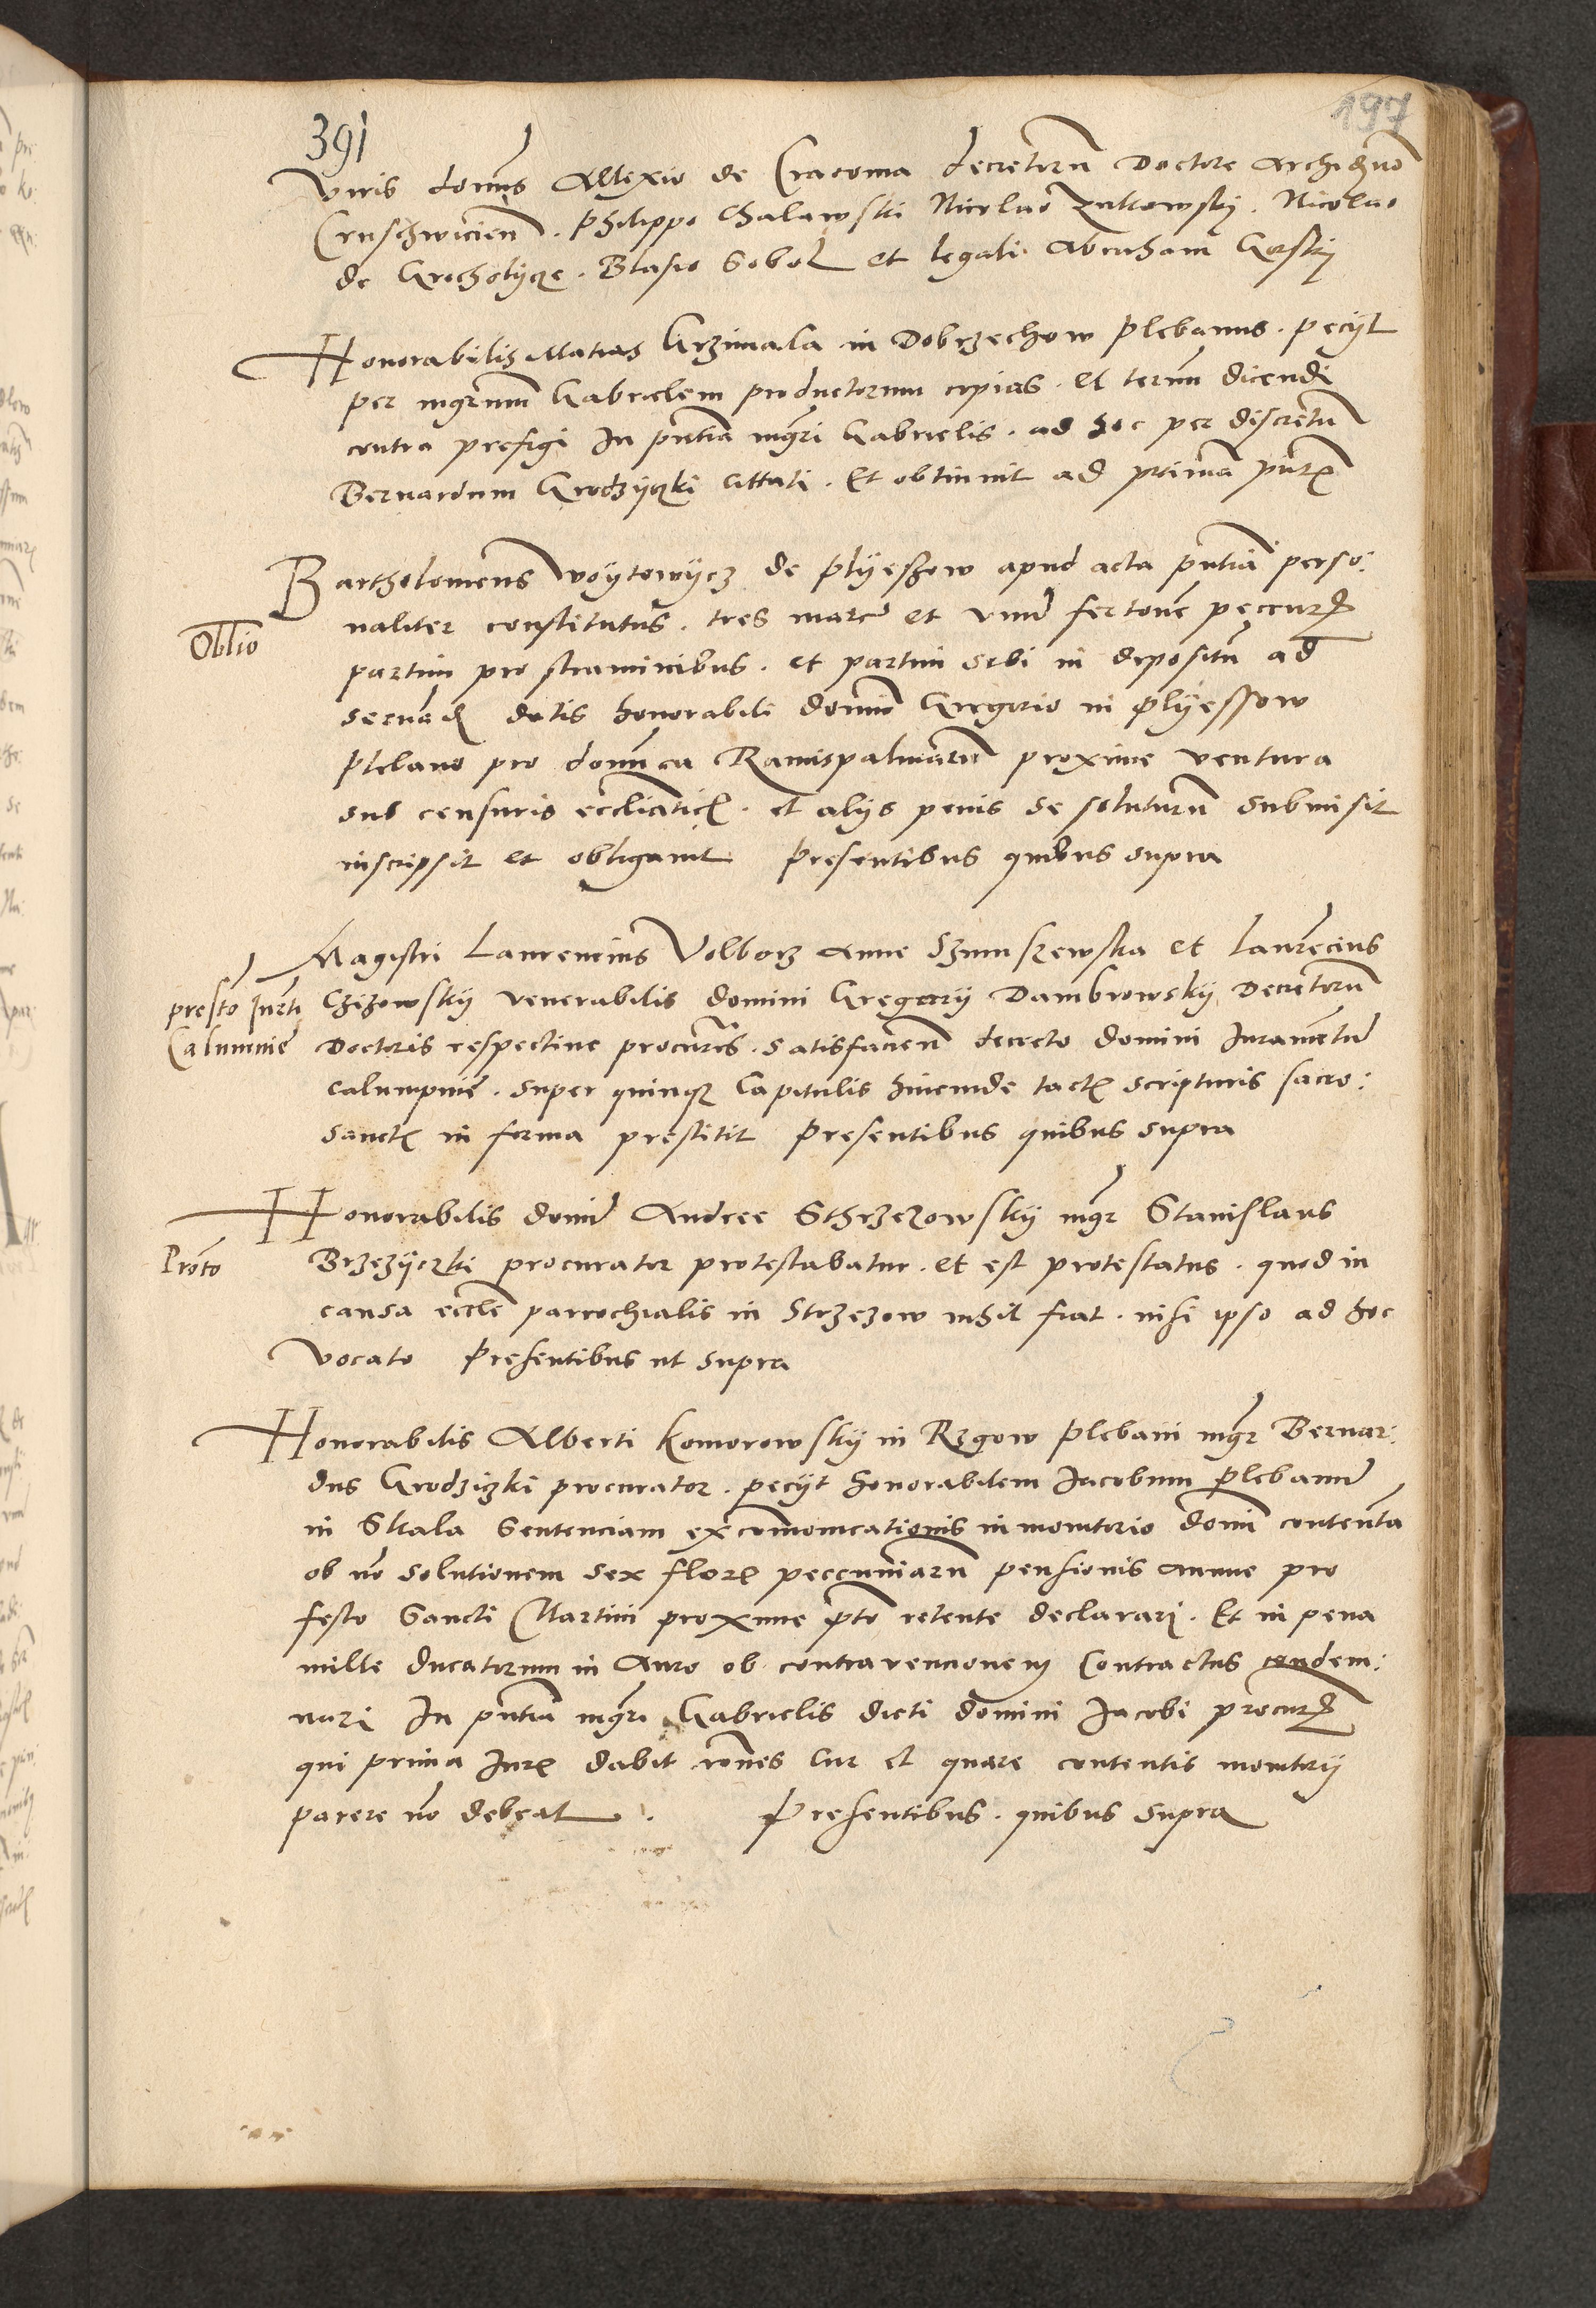 391
197
viris domīs Allexio de Cracouia decretorum Doctore Archidiacono
Cruschwicien . Philippo Chalawski Nicolao Zukowsky . Nicolao
de Grocholycze . Blasio Sobol et legali Abraham Gorsky
Honorabilis Matias Grzimala in Dobrzechow plebanus . pecyt
per mgrum Gabrielem productorum copias . et termi dicendi
contra prefigi In pntia mgri Gabrielis . ad hoc per discretū
Bernardum Grodzyczki cittati . Et obtinuit ad primā
Bartholomeus voytowycz de plyeschow apud acta pntia perso:
Oblio
naliter constitutus . tres marc et vnū fertonē peccun
partim pro straminibus . et partim sibi in depositū ad
seruād datis honorabili domino Gregorio in plyessow
plebano pro domīca Ramispalmarū proxime ventura
sub censuris ecclīaticis . et alys penis se soluturū submisit
inscripsit et obligauit Presentibus quibus supra
Magistri Laurencius Volborz Anne Szumszewska et Laurēcius
presto Jurti
Calumnie
Czizowsky venerabilis domini Gregory Dambrowsky Decretorū
Doctoris respectiue procurēs . satisfacien decreto domini Iuramentū
calumpnie . super quinque Capitulis hincinde tactis scripturis sacro:
sanctis in forma prestitit Presentibus quibus supra
Honorabilis domī Andree Sthrzezowsky mgr Stanislaus
Proto
Brzezyczki procurator protestabatur . et est protestatus . quod in
causa eccle parrochialis in Strzezow nihil fiat . nisi ipso ad hoc
vocato Presentibus ut supra
Honorabilis Alberti Komorowsky in Rzgow plebani mgr Bernar:
dus Grodziczki procurator . pecyt honorabilem Jacobum plebanū
in Skala Sentenciam excommunicationis in monitorio domī contenta
ob nō solutionem sex florē peccuniarū pensionis annue pro
festo Sancti Martini proxime pto retente declarari . Et in pena
mille ducatorum in Auro ob contravencionem Contractus condem:
nari In pntia mgri Gabrielis dicti domini Jacobi procur
qui prima Jur dabit rones cur et quare contentis monitory
parere nō debeat . Presentibus . quibus supra